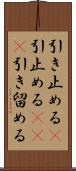 引き止める
引止める
引き留める